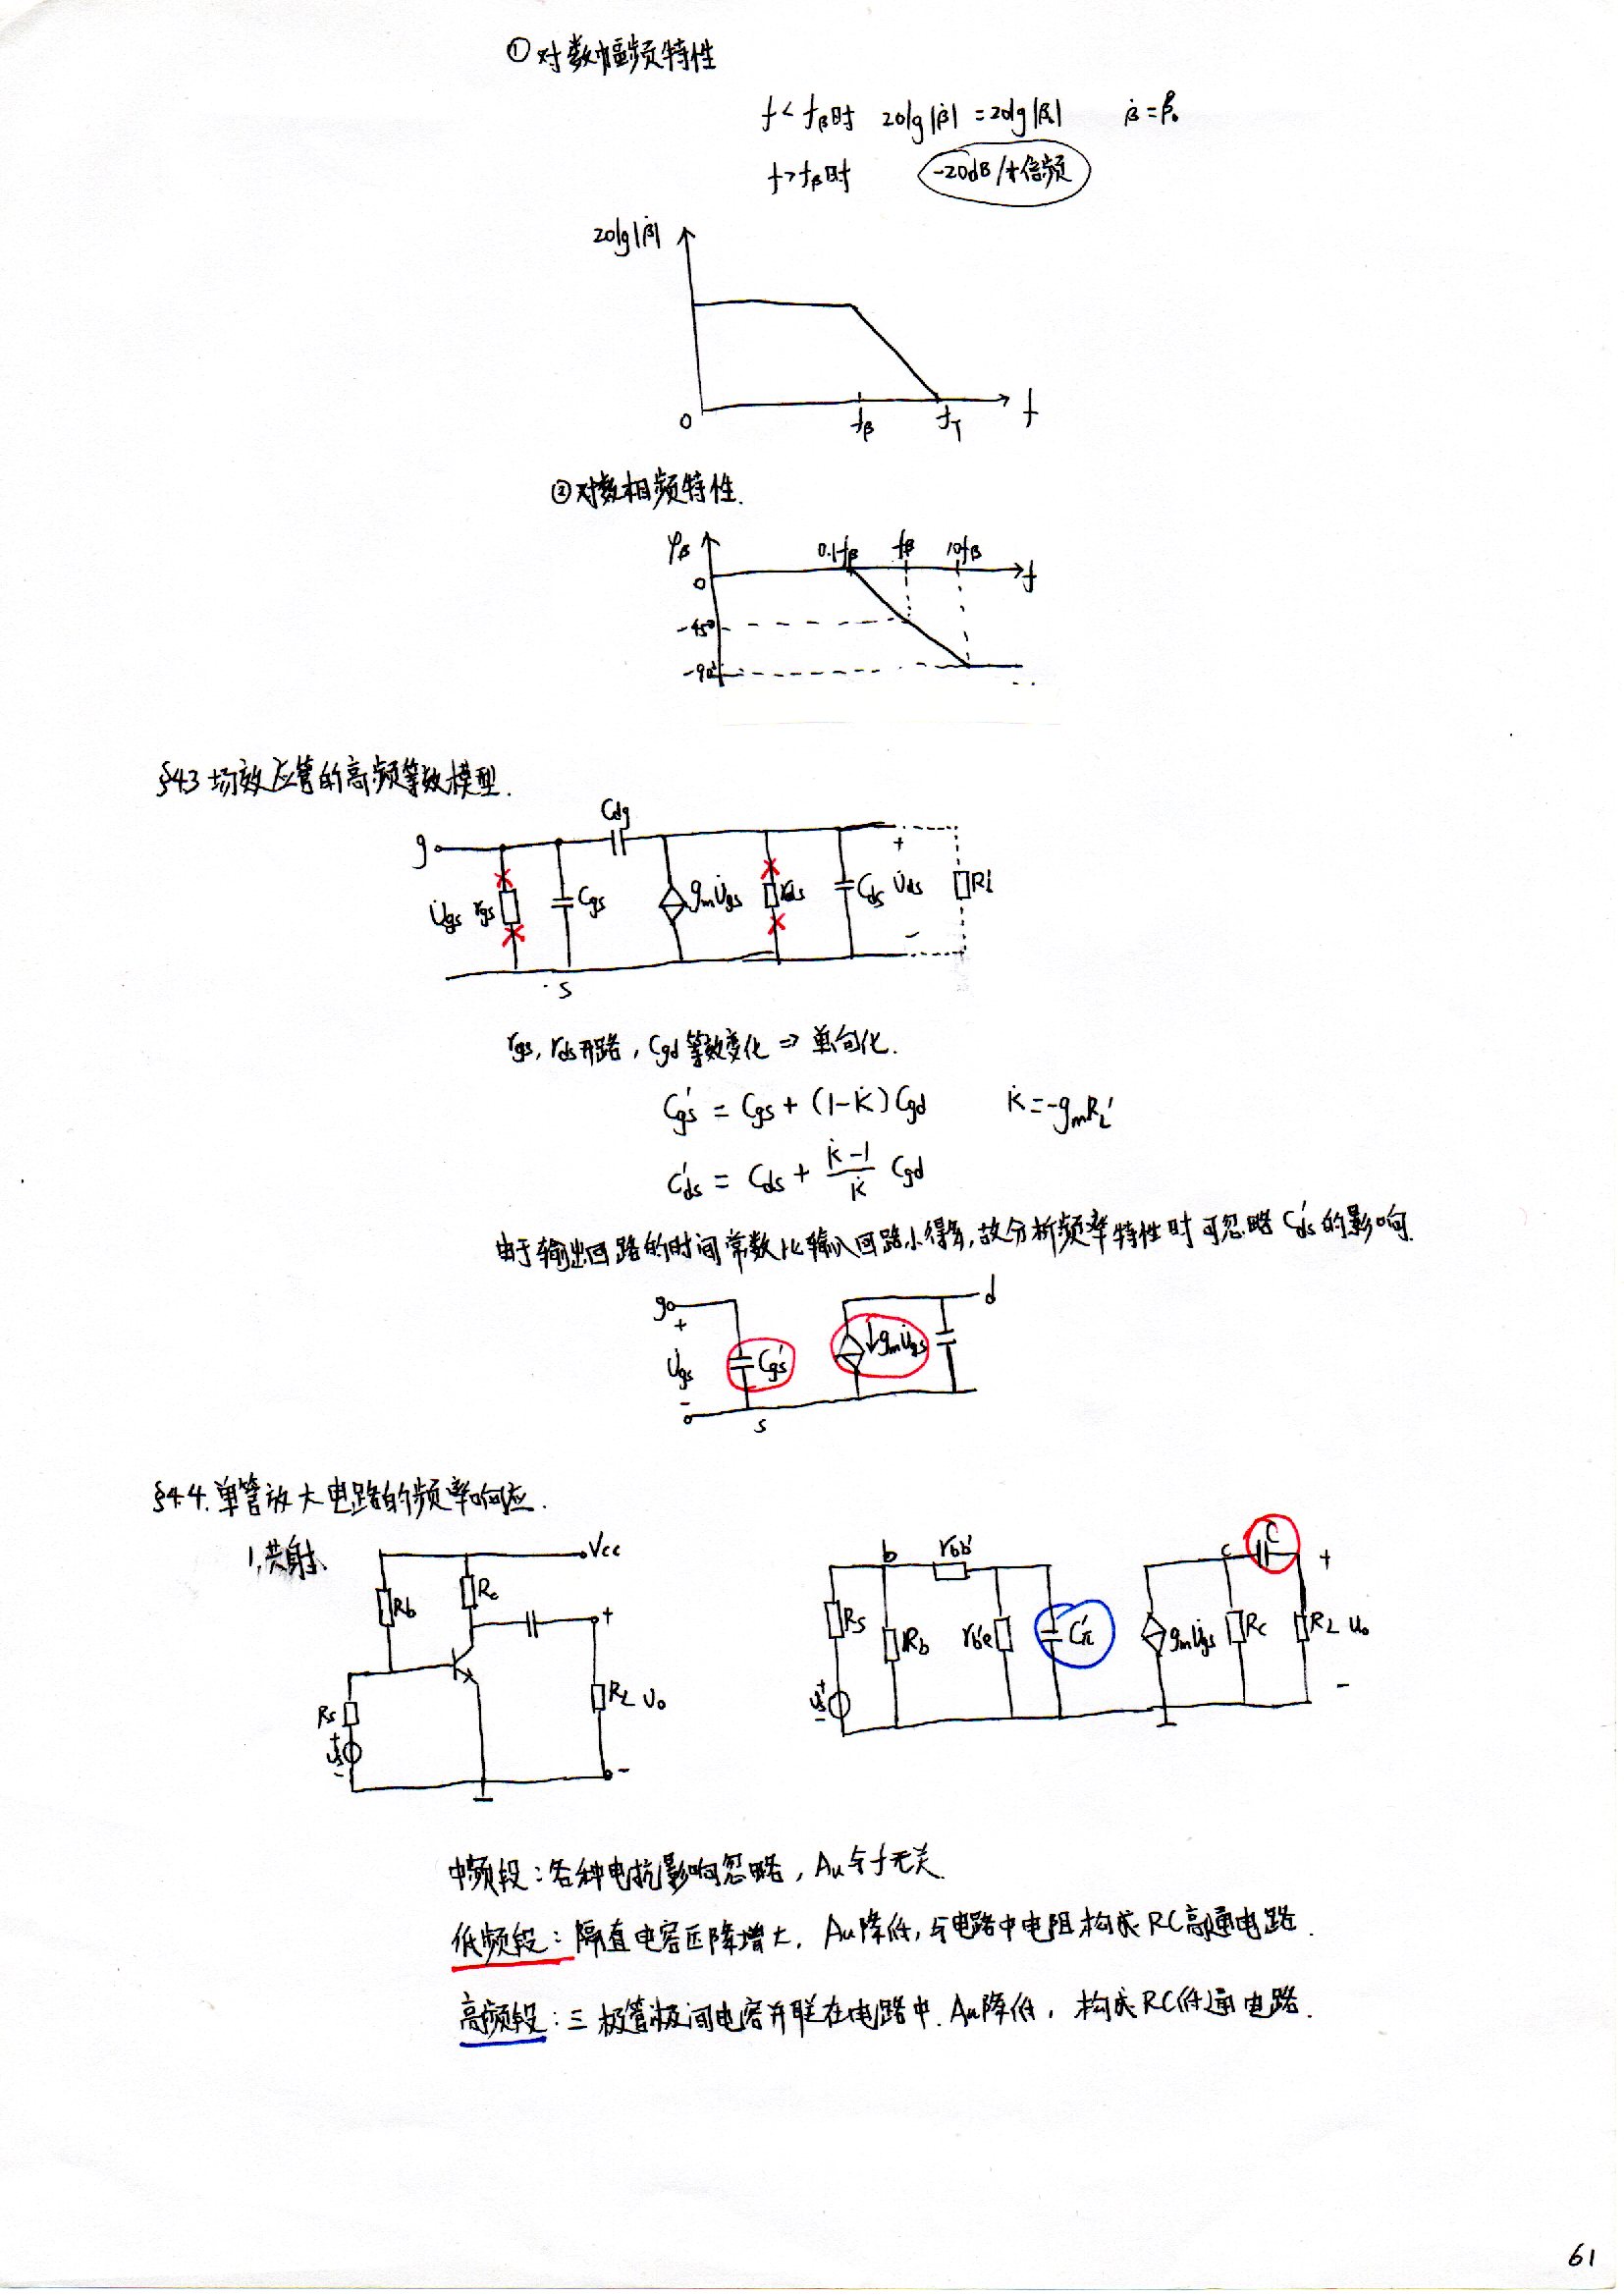 ①对数幅频特性
f<fβ时 20lg|β̇| = 20lg|β₀| β̇=β₀
f>fβ时 -20dB/十倍频
20lg|β̇|
0 fβ fT f
②对数相频特性.
φβ 0.1fβ fβ 10fβ
0 f
-45°
-90°
§4.3 场效应管的高频等效模型.
Cdg
g +
U̇gs rgs Cgs gmU̇gs rds Cds U̇ds RL'
-
s
rgs, rds开路, Cgd等效变化 ⇒ 单向化.
Cgs' = Cgs + (1-K̇)Cgd K̇=-gmRL'
Cds' = Cds + (K̇-1)/K̇ Cgd
由于输出回路的时间常数比输入回路小得多,故分析频率特性时可忽略Cds'的影响.
g d
+
U̇gs Cgs' ↓gmU̇gs
-
s
§4.4.单管放大电路的频率响应.
1,共射、
Vcc
Rb Rc +
RL Uo
Rs
+
Us
-
-
b rbb' c C +
Rs Rb rb'e Cπ' gmU̇gs Rc RL Uo
Us + -
-
中频段:各种电抗影响忽略, Au与f无关.
低频段:隔直电容压降增大, Au降低,与电路中电阻构成RC高通电路.
高频段:三极管极间电容并联在电路中. Au降低, 构成RC低通电路.
61